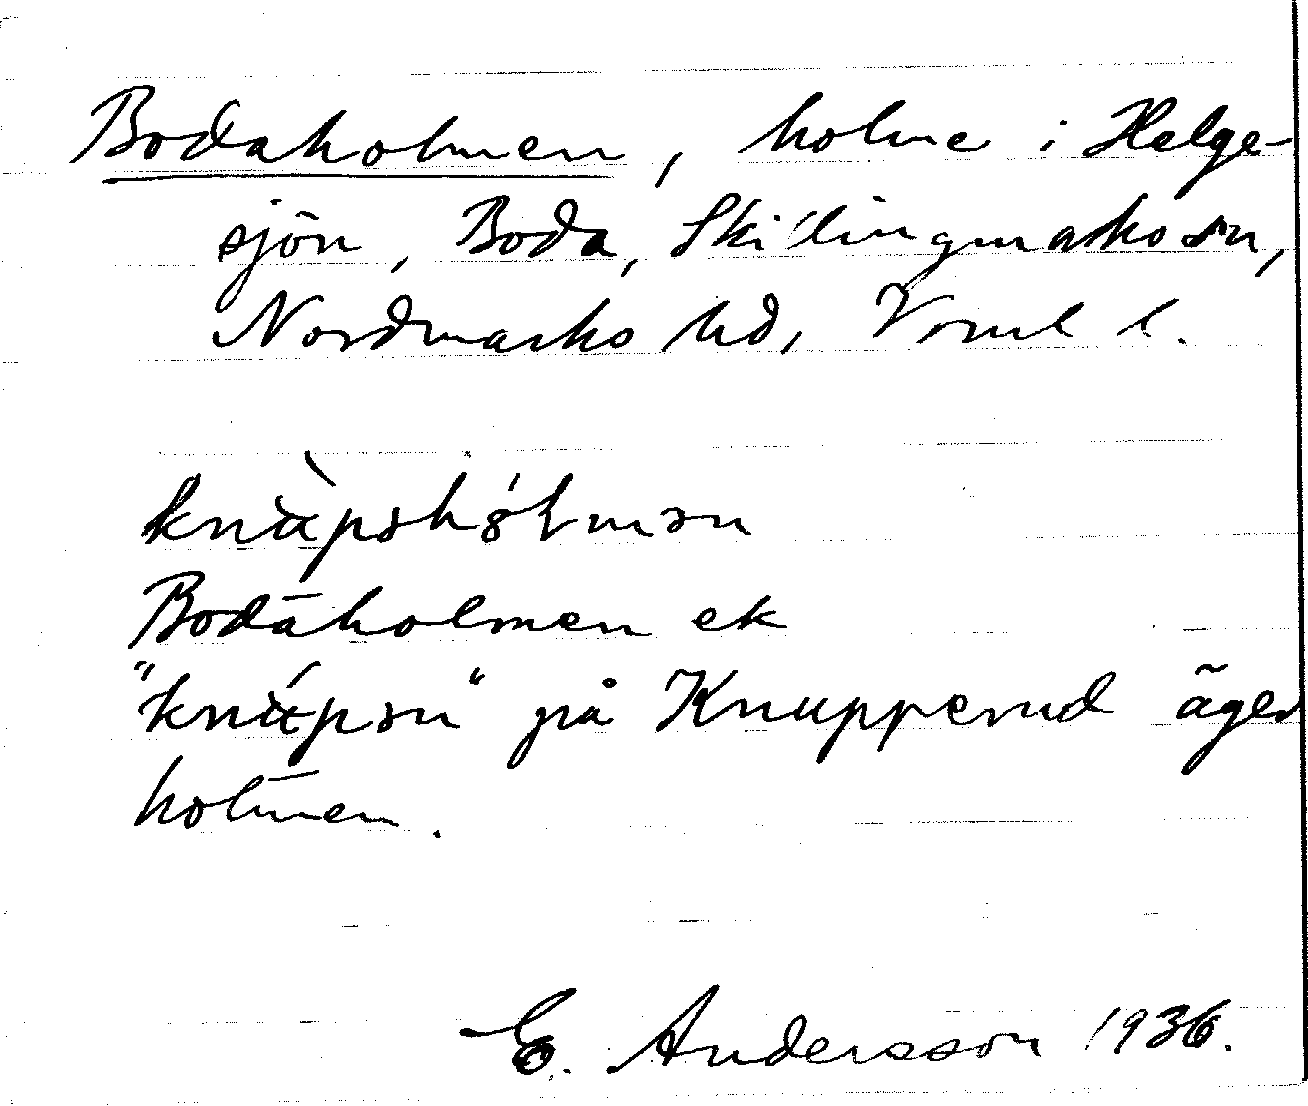 Bodaholmen, holme i Helge-
sjön, Boda, Skillingmarks sn,
Nordmarks hd, Vrml l.
knäpshólmən
Bodaholmen ek
"knäpsn" på Knupperud äger
holmen.
E. Andersson 1936.